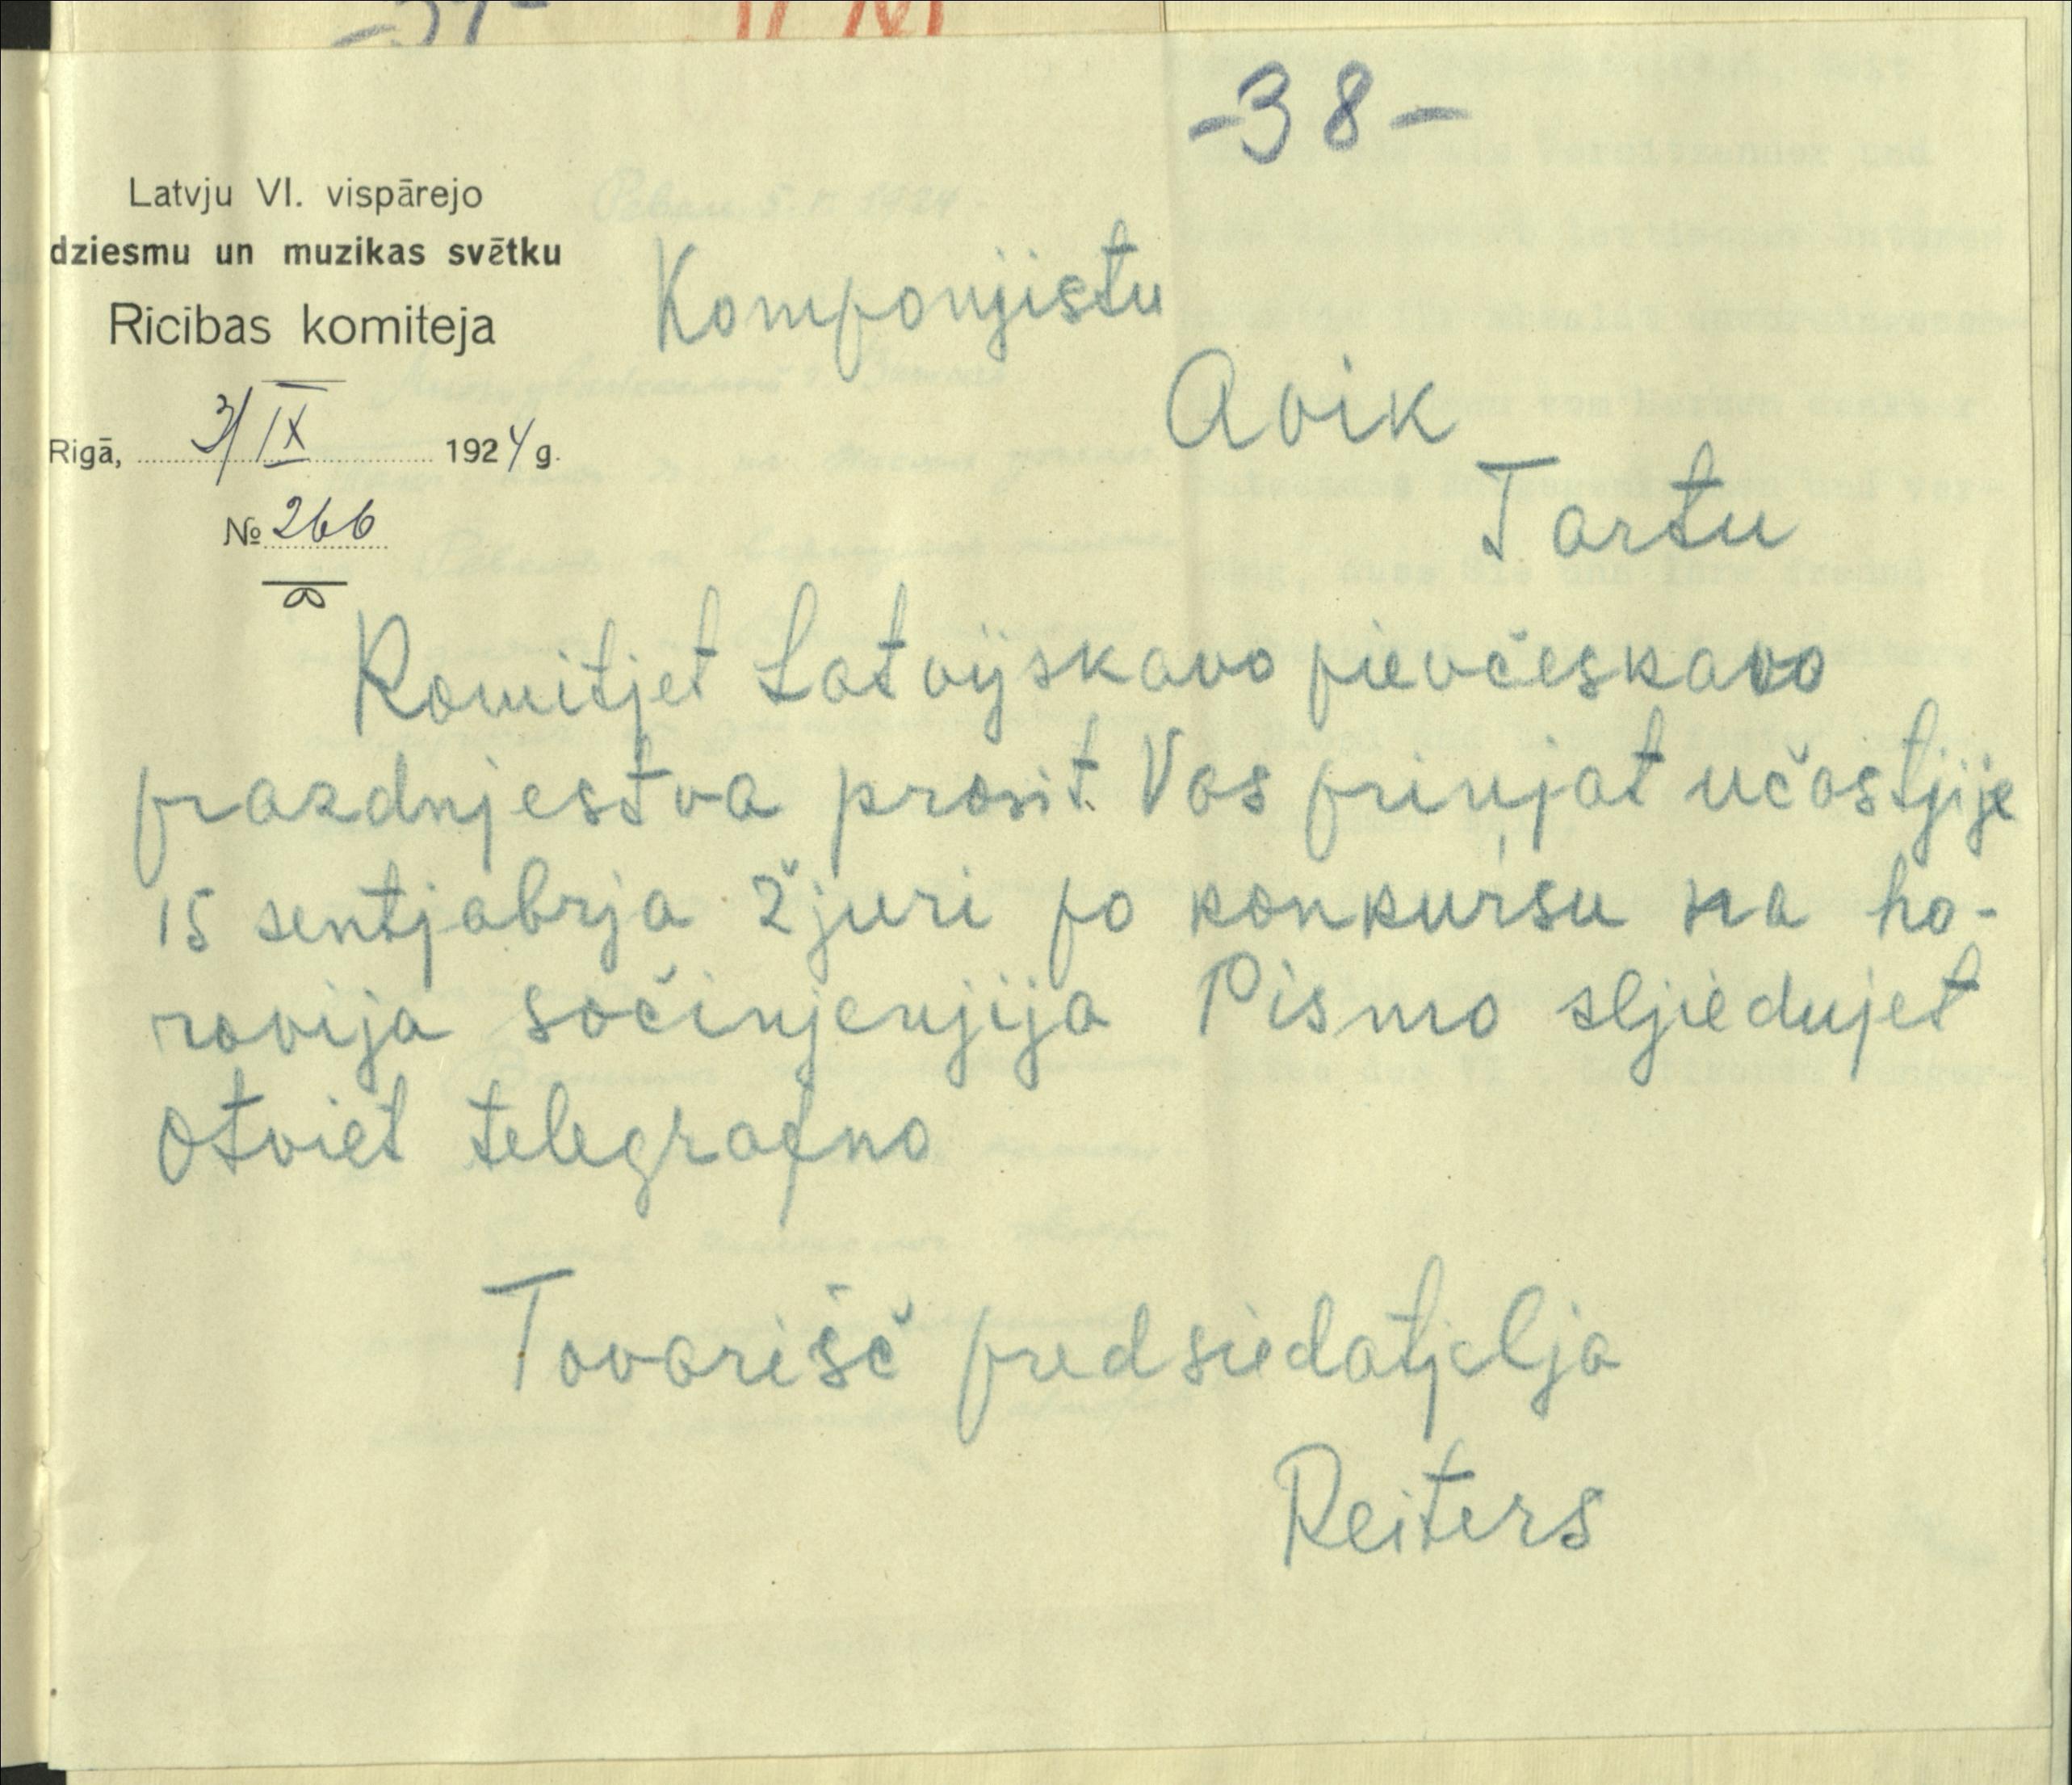 -38-
Latvju VI. vispārejo
dziesmu un muzikas svētku
Rīcības komiteja
Rīgā, 3/IX 1924 g.
№ 266
Komponjistu
Avik
Tartu
Komitjet Latvijskavo pievčeskavo
prazdnjestva prosit Vas prinjat učastjije
15 sentjabrja ž juri po konkursu na ho-
rovija sočinjenjija Pismo sljiedujet
Otviet telegrafno
Tovarišč predsiedatjelja
Reiters